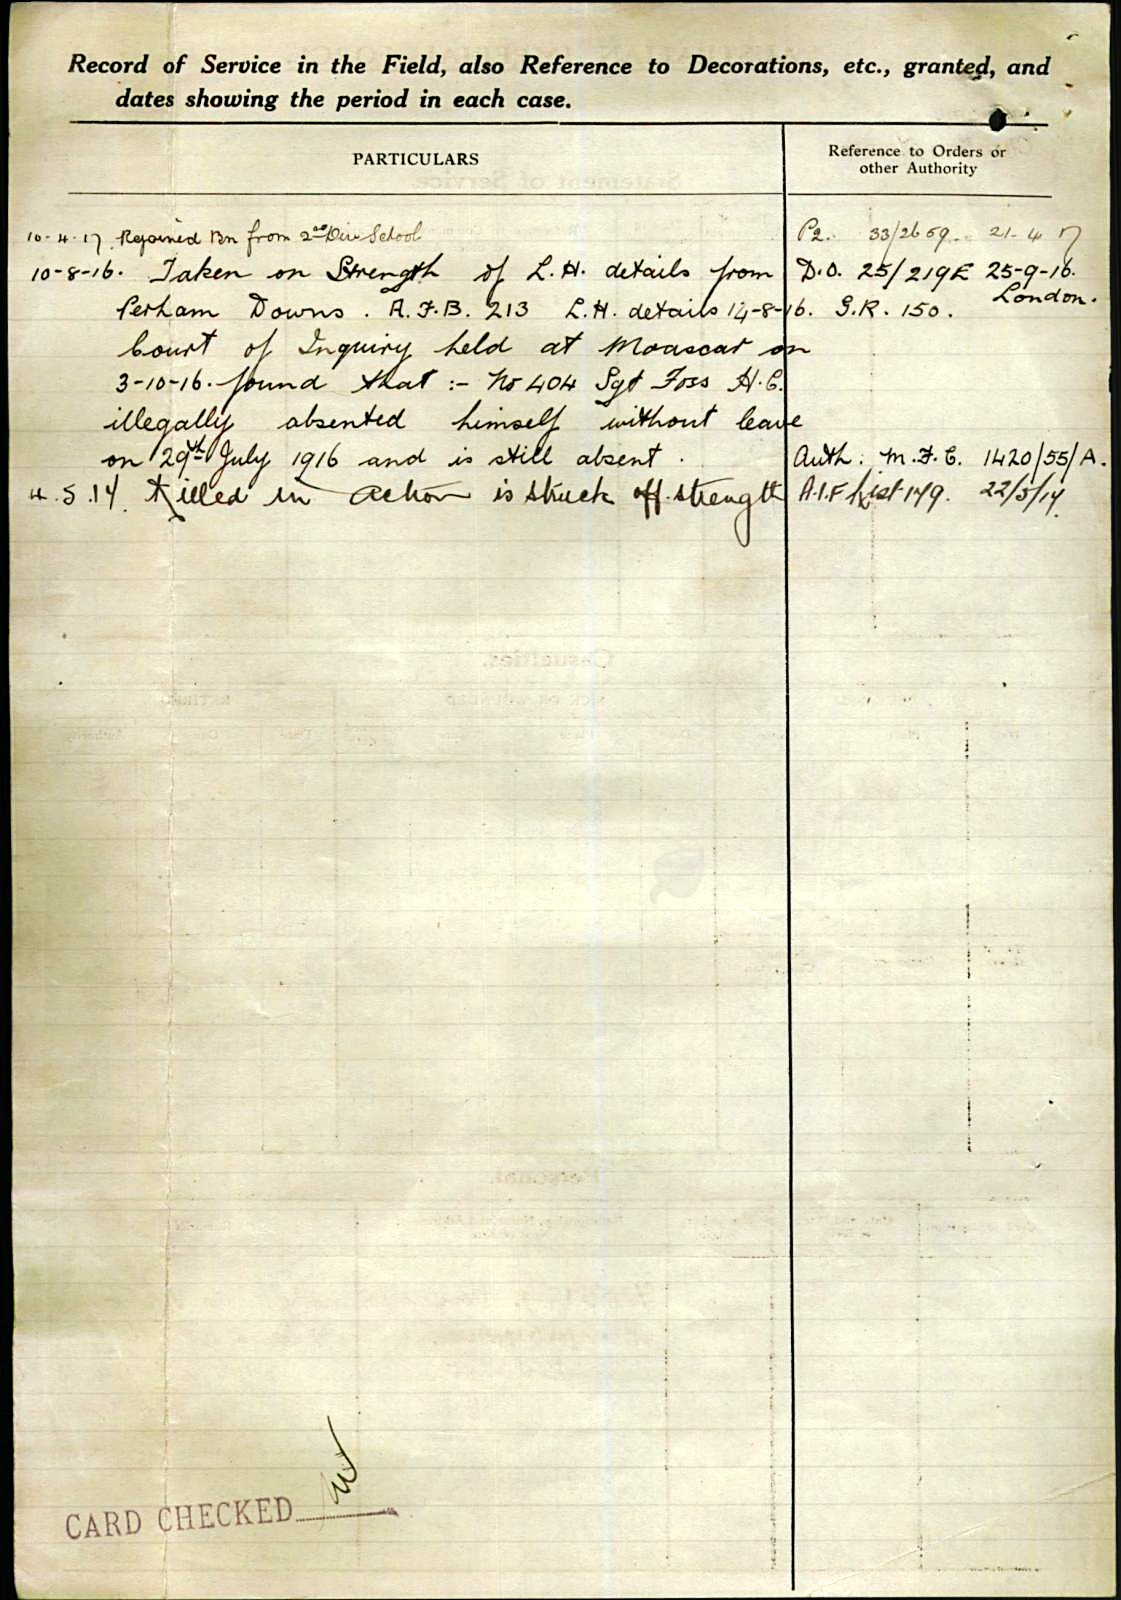 Record of Service in the Field, also Reference to Decorations, etc., granted, and
dates showing the period in each case.
PARTICULARS
Reference to Orders or
other Authority
10-4-17. Rejoined Bn from 2nd Div School P2. 33/2659. 21-4-17
10-8-16. Taken on Strength of L.H. details from D.O. 25/219E 25-9-16.
London.
Perham Downs. A.F.B. 213 L.H. details 14-8-16. G.R. 150.
Court of Inquiry held at Moascar on
3-10-16. found that :- No 404 Sgt Foss H.C.
illegally absented himself without leave
on 29th July 1916 and is still absent. Auth: M.F.C. 1420/55/A.
4.5.17. Killed in Action is struck off strength A.I.F List 179. 22/5/17.
CARD CHECKED